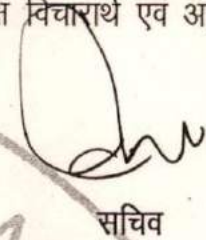 विचारार्थ एवं अ
सचिव